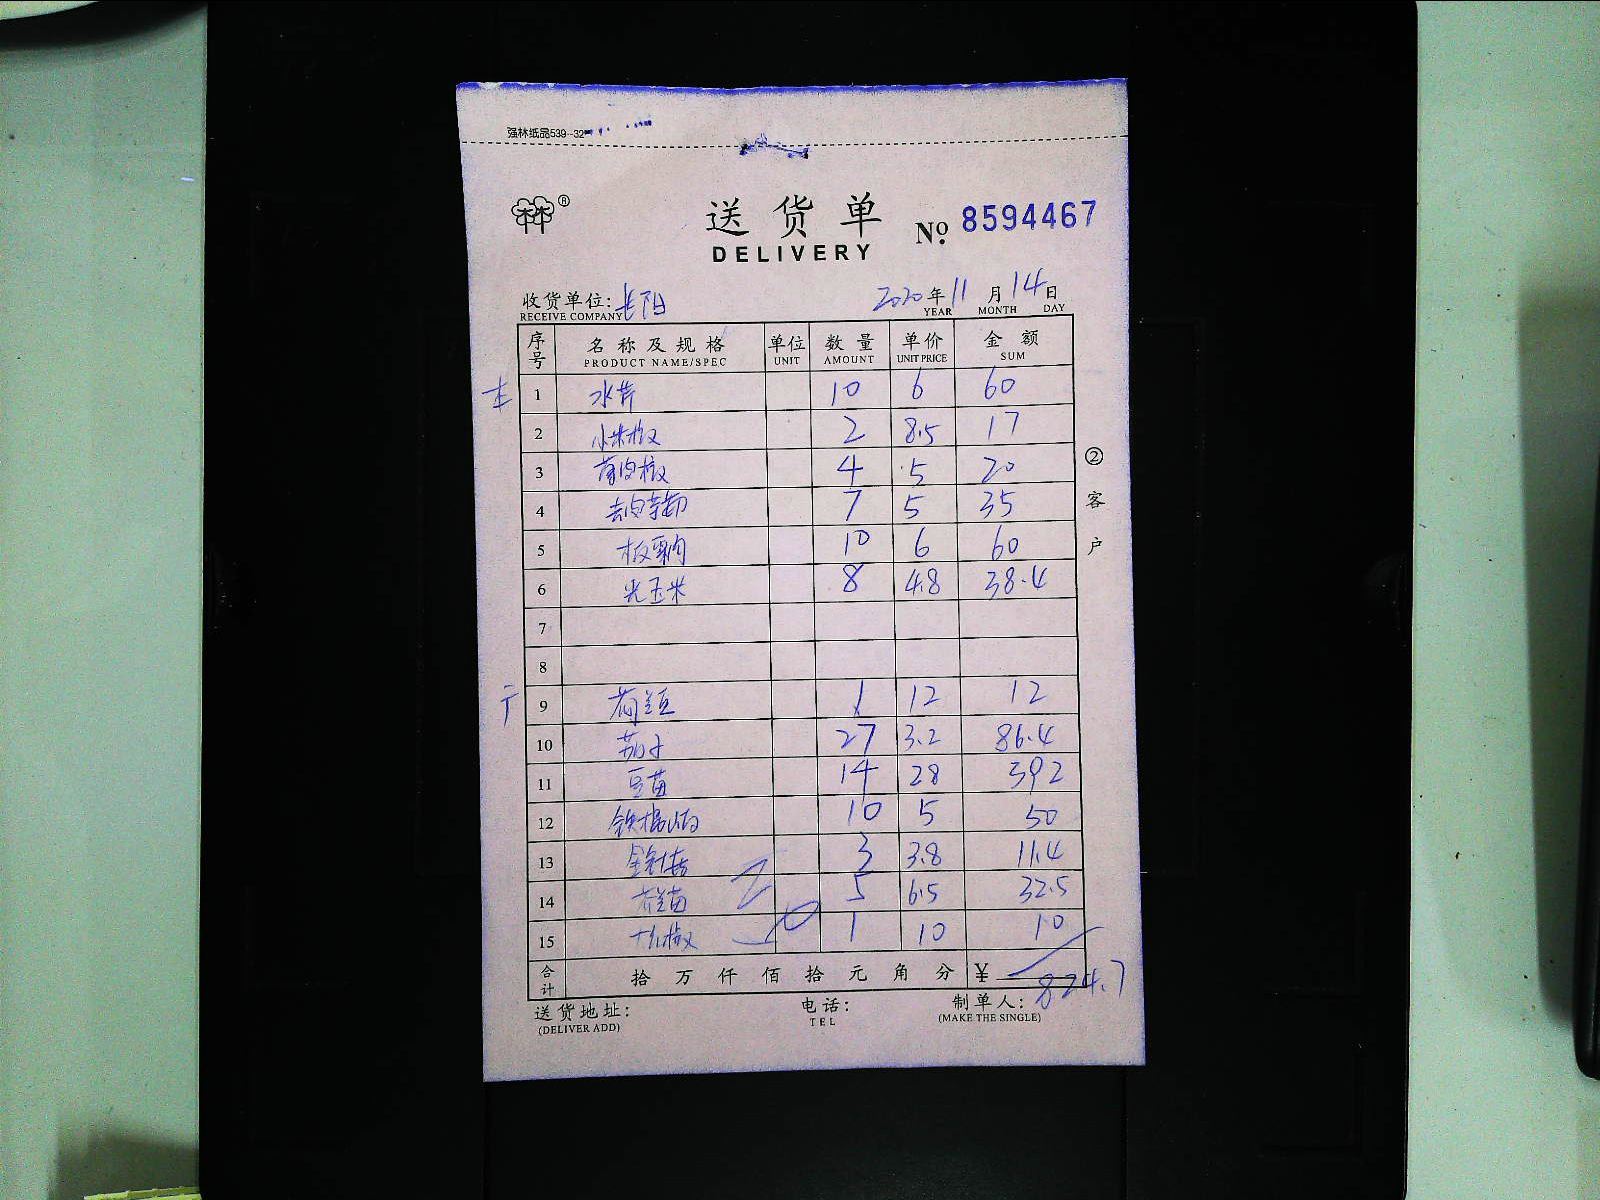 强林纸品539--32
送货单
DELIVERY
№ 8594467
收货单位: 长阳 2020年11月14日
RECEIVE COMPANY YEAR MONTH DAY
序号 名称及规格 单位 数量 单价 金额
PRODUCT NAME/SPEC UNIT AMOUNT UNIT PRICE SUM
1 水芹 10 6 60
2 小米椒 2 8.5 17
3 椒 4 5 20
4 7 5 35
5 板栗肉 10 6 60
6 光玉米 8 4.8 38.4
7
8
9 荷兰豆 1 12 12
10 茄子 27 3.2 86.4
11 豆苗 14 28 392
12 铁棍山药 10 5 50
13 金针菇 3 3.8 11.4
14 5 6.5 32.5
15 椒 1 10 10
合计 拾万仟佰拾元角分 ¥ 824.7
送货地址: 电话: 制单人:
(DELIVER ADD) TEL (MAKE THE SINGLE)
②客户